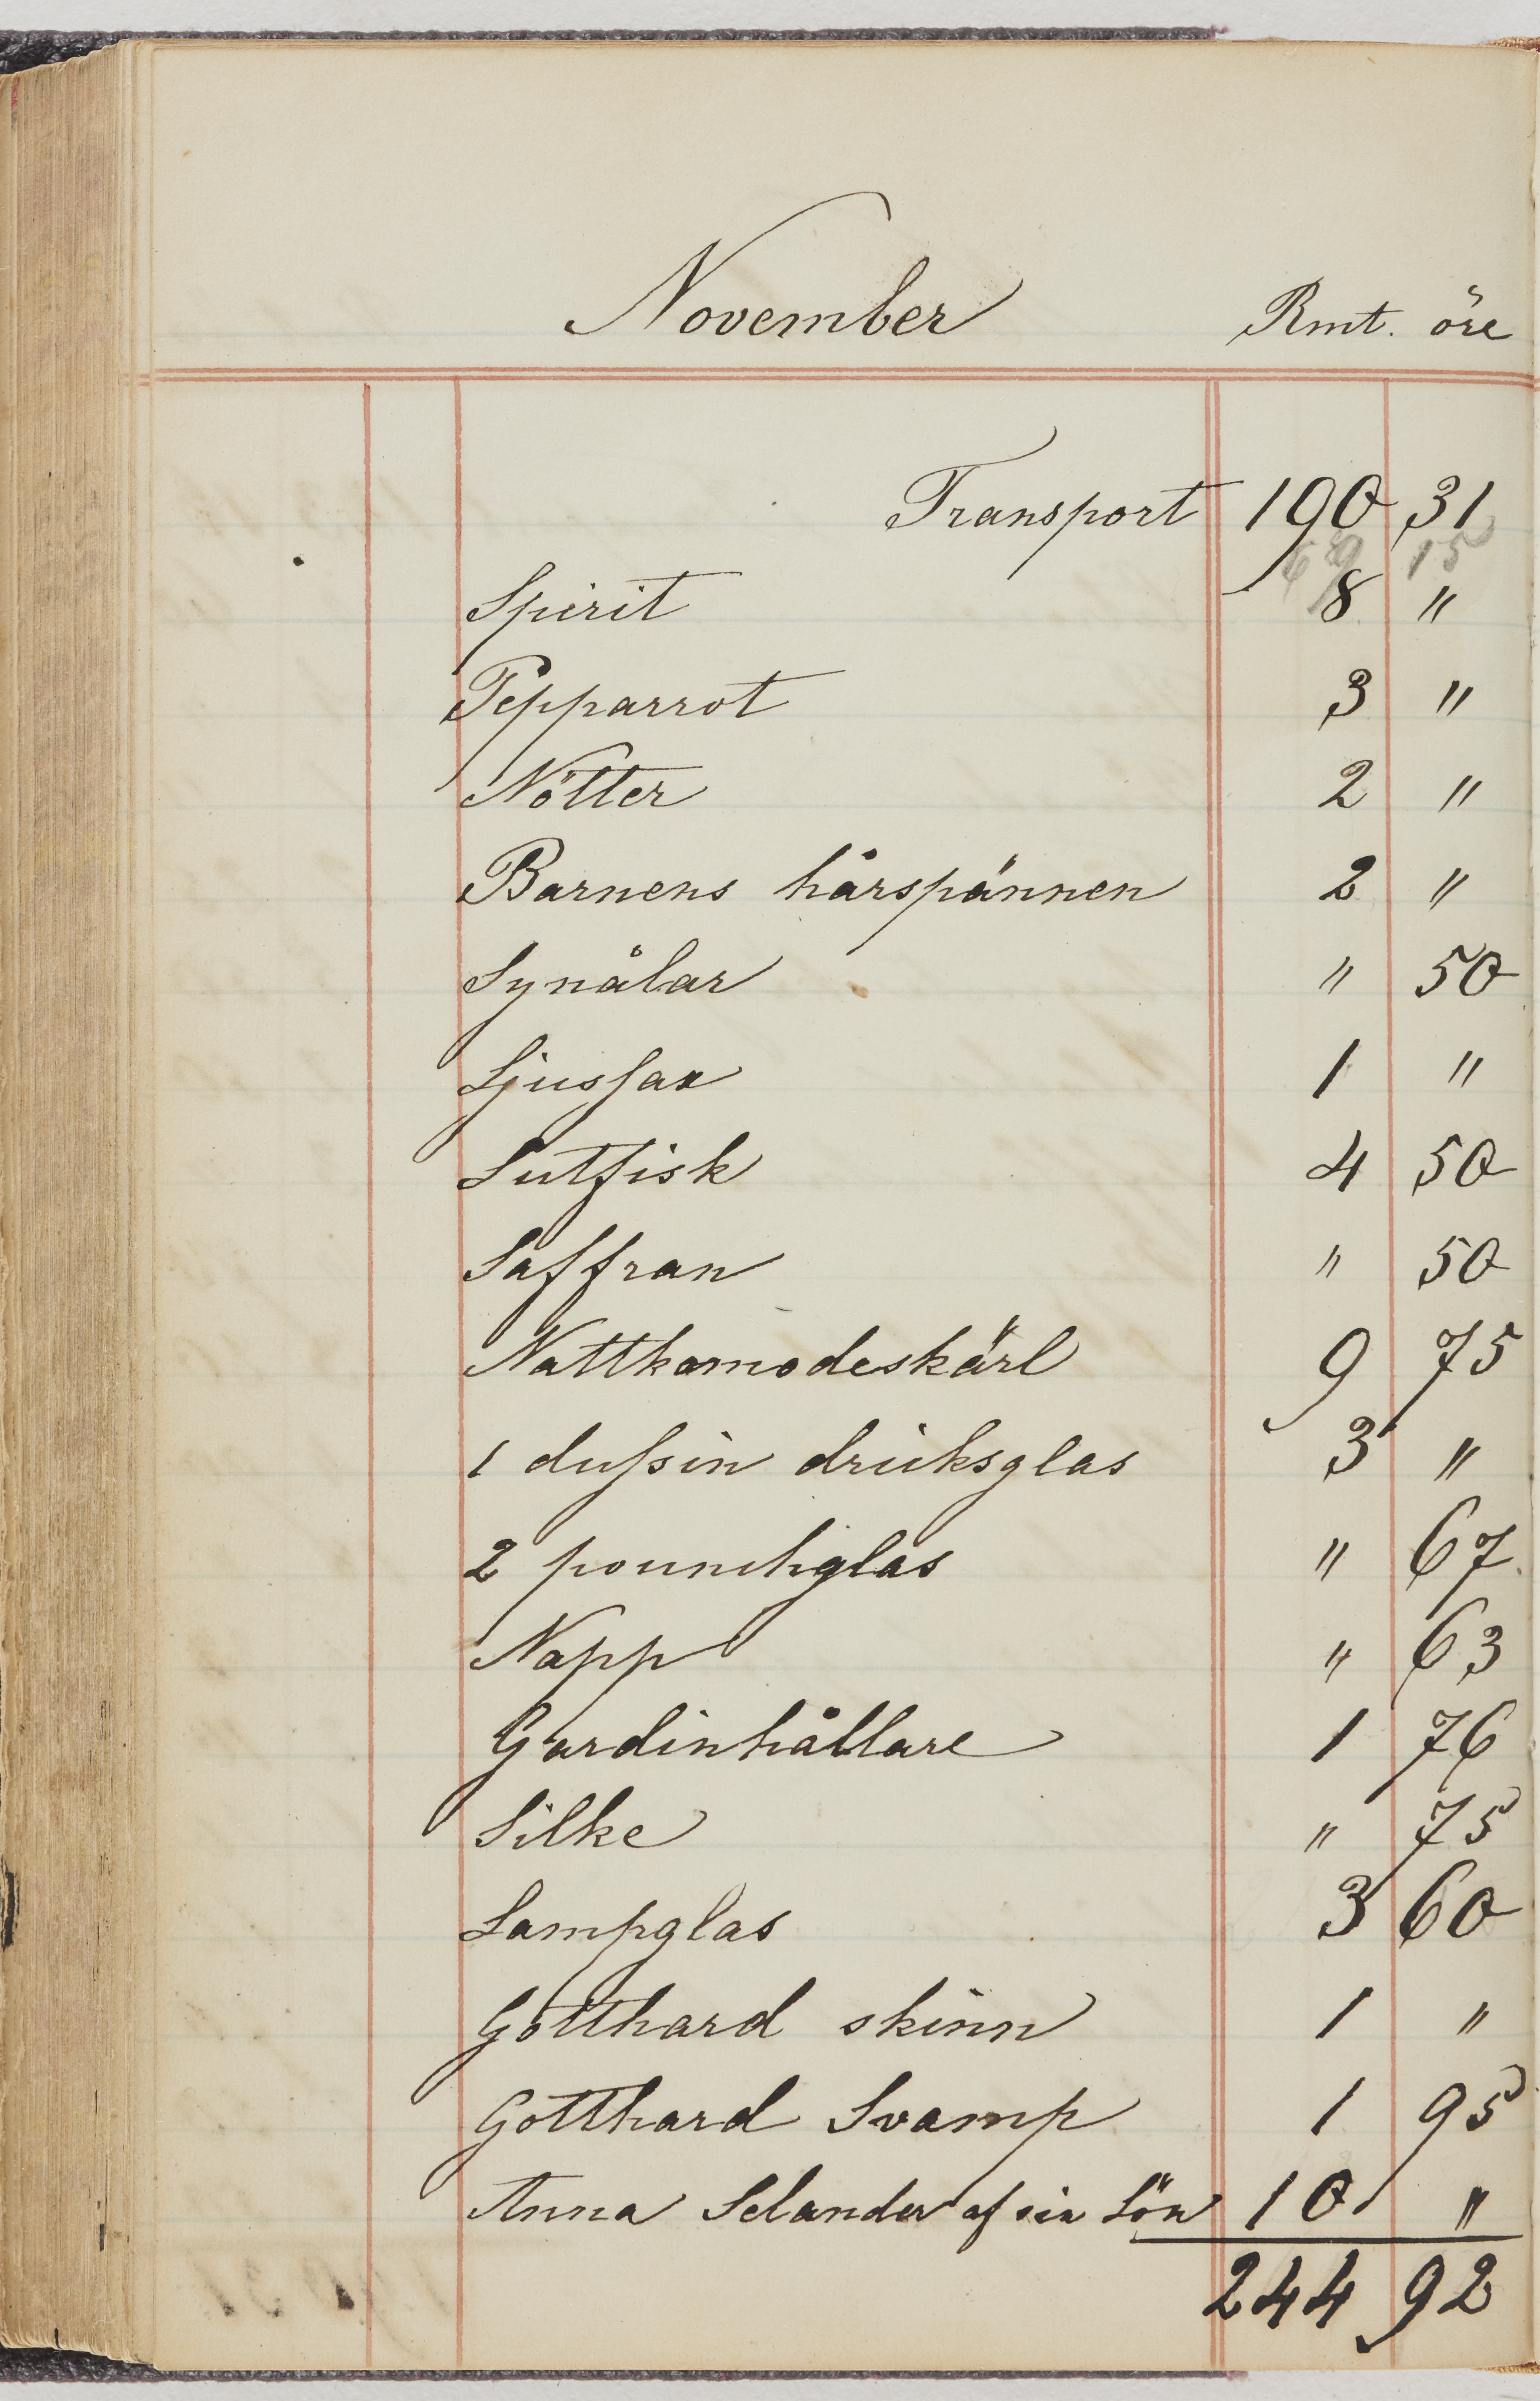 November Rmt. öre
Transport 190 31
69 15
Spirit 8 "
Pepparrot 3 "
Nötter 2 "
Barnens hårspännen 2 "
Synålar " 50
Ljussax 1 "
Lutfisk 4 50
Saffran " 50
Nattkomodeskärl 9 75
1 dussin dricksglas 3 "
2 pounchglas " 67
Napp " 63
Gardinhållare 1 76
Silke " 75
Lampglas 3 60
Gotthard skinn 1 "
Gotthard Svamp 1 95
Anna Selander af sin Lön 10 "
244 92